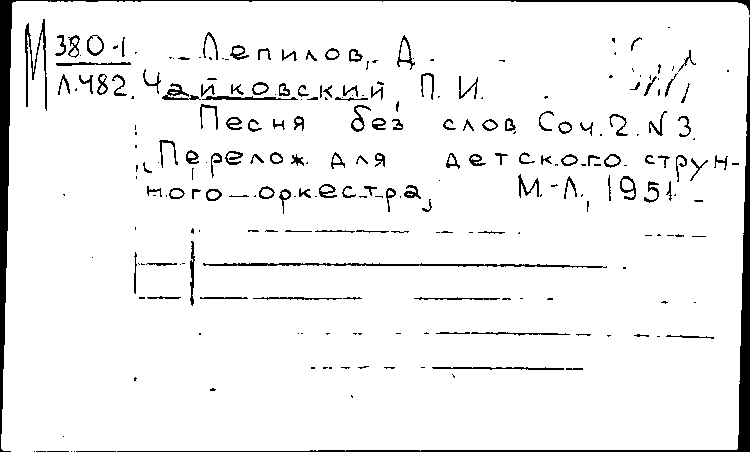 М 380-1 Лепилов, А.
Л.482. Чайковский, П. И.
Песня без слов Соч. 2. N 3.
Перелож. для детского струн-
ного оркестра, М.-Л., 1951